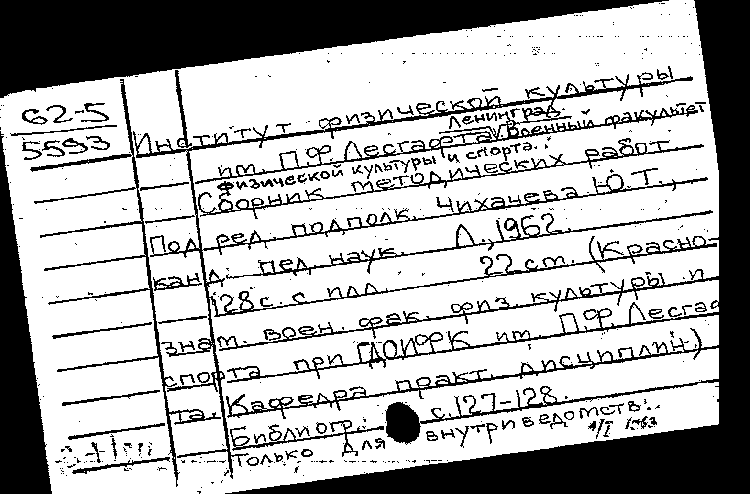 62-5
5593
Институт физической культуры
им. П.Ф. Лесгафта, Ленинград. Военный факультет
физической культуры и спорта.
Сборник методических работ.
Под ред. подполк. Чихачева Ю.Т.,
канд. пед. наук. Л., 1962.
128 с. с илл. 22 cm. (Красно-
знам. воен. фак. физ. культуры и
спорта при ГДОИФК им. П.Ф. Лесгаф
та. Кафедра практ. дисциплин)
Библиогр.: с. 127-128.
Только для внутриведомств..
4/I 1963